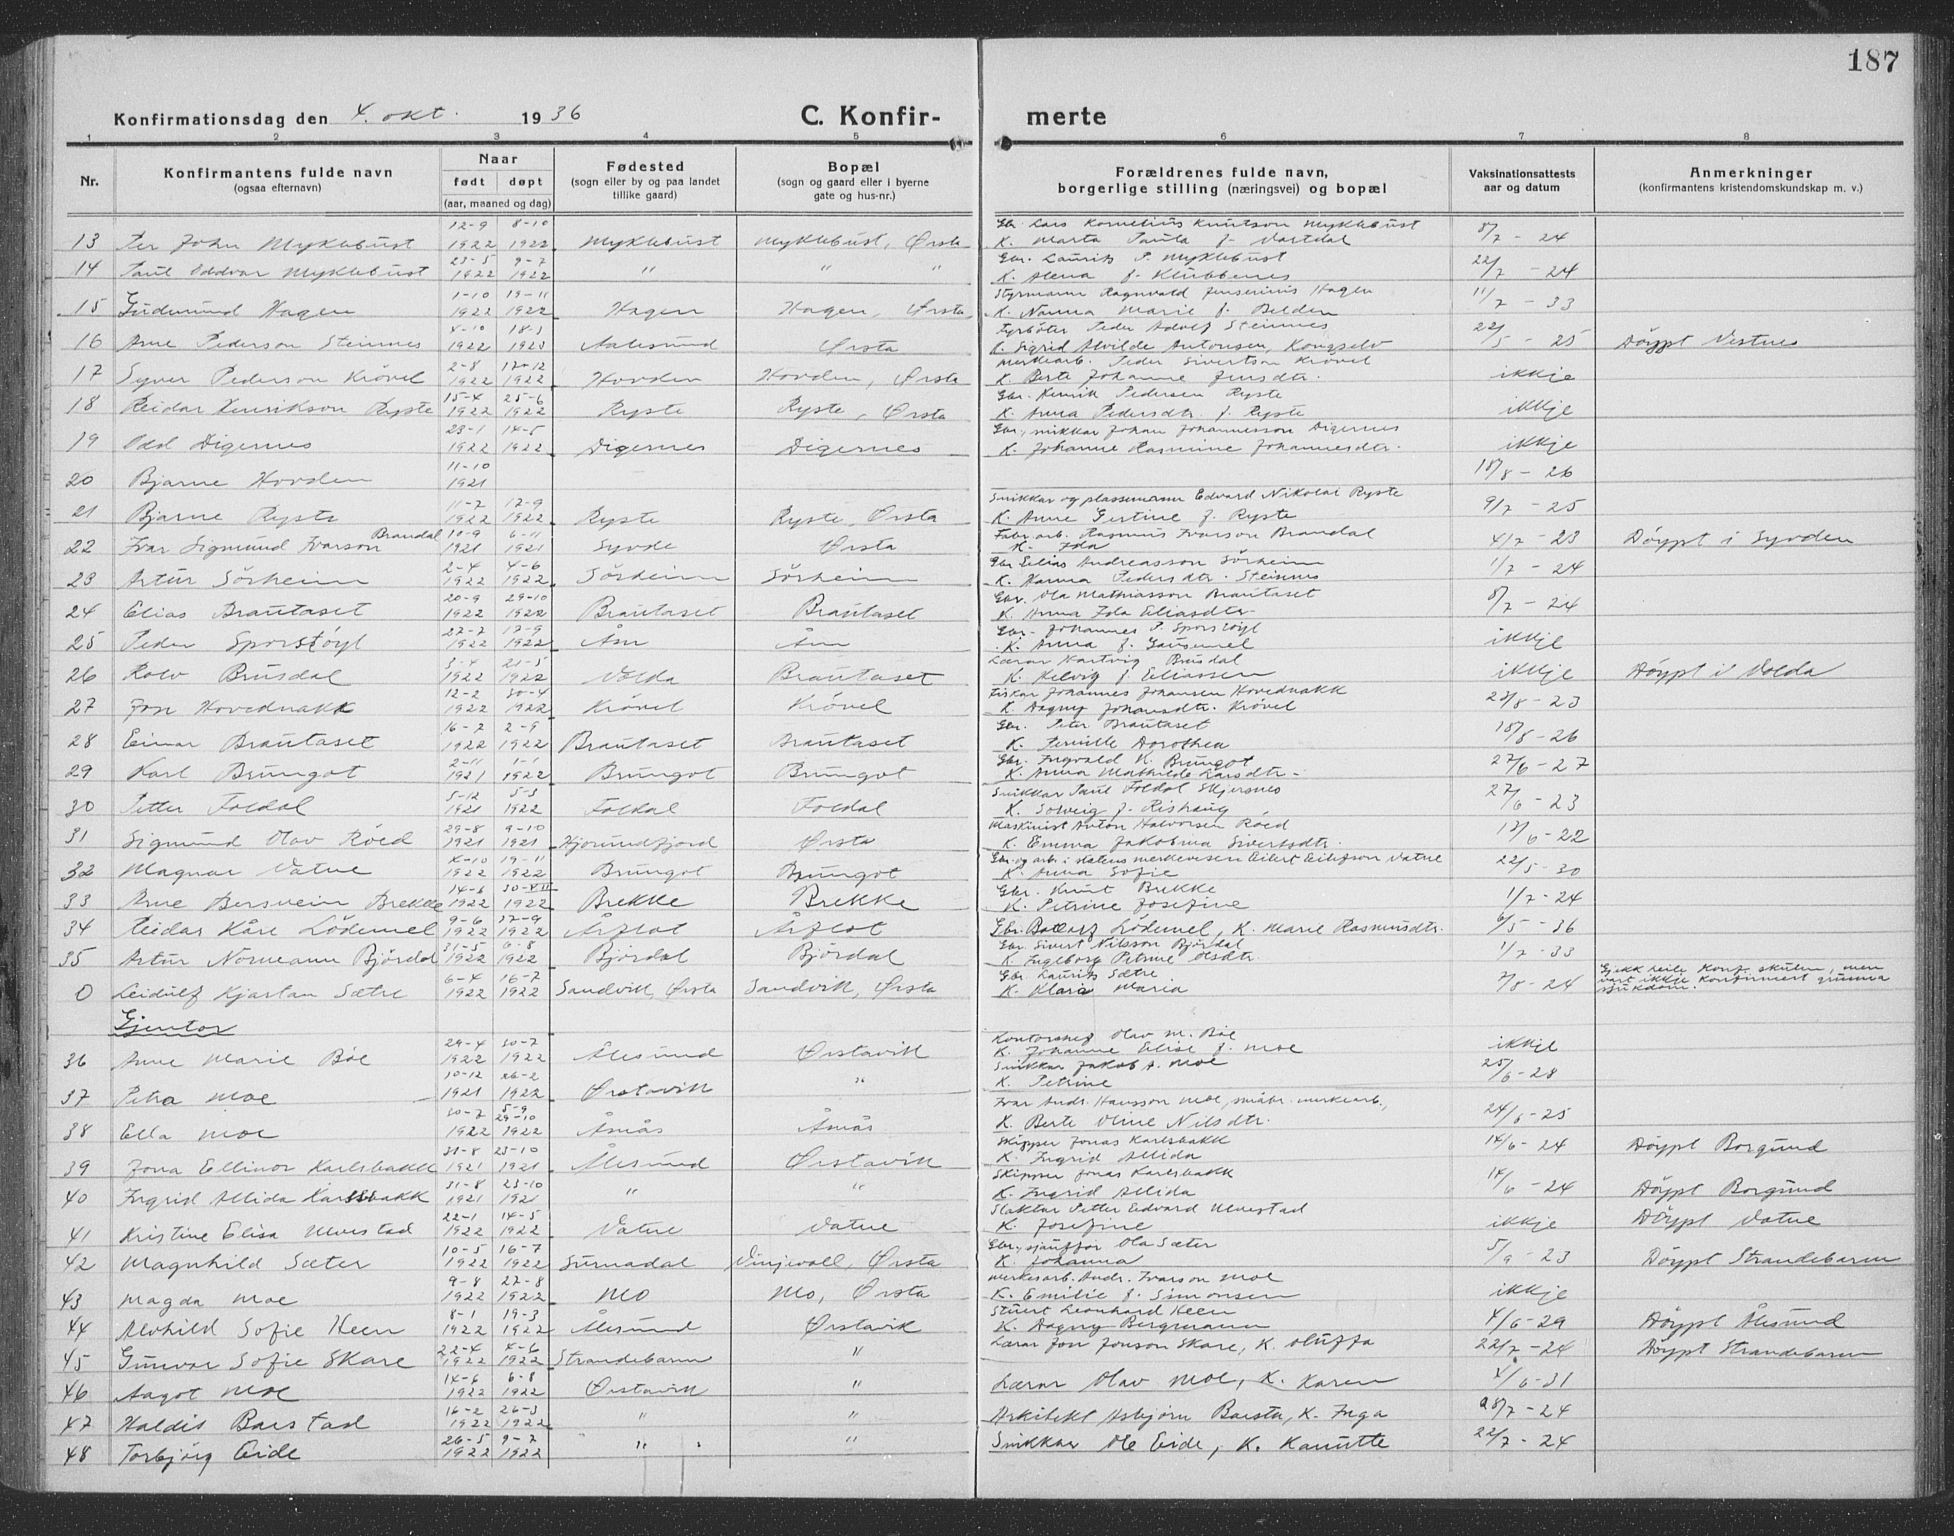 187
Konfirmationsdag den 4. okt. 1936 C. Konfir- merte
1 2 3 4 5 6 7 8
Nr. Konfirmantens fulde navn (ogsaa efternavn) Naar født døpt (aar, maaned og dag) Fødested (sogn eller by og paa landet tillike gaard) Bopæl (sogn og gaard eller i byerne gate og hus-nr.) Forældrenes fulde navn, borgerlige stilling (næringsvei) og bopæl Vaksinationsattests aar og datum Anmerkninger (konfirmantens kristendomskundskap m. v.)
13 Per John Myklebust 12-9 1922 8-10 1922 Myklebust Myklebust, Ørsta Gbr. Lars Kornelius Knutson Myklebust K. Marta Paula f. Vartdal 8/7 - 24
14 Paul Oddvar Myklebust 23-5 1922 9-7 1922 " " " Gbr. Laurits P. Myklebust K. Alena f. Klubbenes 22/7 - 24
15 Gudmund Hagen 1-10 1922 19-11 1922 Hagen Hagen, Ørsta Styrmann Ragnvald Jenserius Hagen K. Nanna Marie f. Belden 11/7 - 33
16 Arne Pederson Steinnes 4-10 1922 18-3 1923 Aalesund Ørsta Fyrbøter Peder Adolf Steinnes K. Sigrid Alvilde Antonsen, Kongselv 22/5 - 25 Döypt Vestnes
17 Syver Pederson Krövel 2-8 1922 17-12 1922 Hovden Hovden, Ørsta Merkearb. Peder Sivertson Krövel K. Berte Johanne Jensdtr. ikkje
18 Reidar Henrikson Ryste 15-4 1922 25-6 1922 Ryste Ryste, Ørsta Gbr. Henrik Pedersen Ryste K. Anna Pedersdtr. f. Ryste ikkje
19 Odd Digernes 23-1 1922 14-5 1922 Digernes Digernes Gbr., snikkar Johan Johannesson Digernes K. Johanne Rasmine Johannesdtr. ikkje
20 Bjarne Hovden 11-10 1921 18/8 - 26
21 Bjarne Ryste 11-7 1922 17-9 1922 Ryste Ryste, Ørsta Snikkar og plassmann Edvard Nikolai Ryste K. Anne Gertine f. Ryste 9/7 - 25
22 Ivar Sigmund Ivarson Brandal 10-9 1921 6-11 1921 Syvde Ørsta Fabr. arb. Rasmus Ivarson Brandal K. Ida 4/7 - 23 Döypt i Syvden
23 Artur Sörheim 2-4 1922 4-6 1922 Sörheim Sörheim Gbr Elias Andreasson Sörheim K. Hanna Pedersdtr. Steinnes 1/7 - 24
24 Elias Brautaset 20-9 1922 29-10 1922 Brautaset Brautaset Gbr. Ola Mathiasson Brautaset K. Anna Ida Eliasdtr. 8/7 - 24
25 Peder Sporstöyl 27-7 1922 17-9 1922 Åm Åm Gbr. Johannes P. Sporstöyl K. Anna f. Gausemel ikkje
26 Rolv Brusdal 3-4 1922 21-5 1922 Volda Brautaset Lærar Hartvig Brusdal K. Helvig f. Eliassen ikkje Döypt i Volda
27 Jon Hovednakk 12-2 1922 30-4 1922 Krövel Krövel Fiskar Johannes Johansen Hovednakk K. Dagny Johansdtr. Krövel 23/8 - 23
28 Einar Brautaset 16-7 1922 2-9 1922 Brautaset Brautaset Gbr. Peter Brautaset K. Pernille Dorothea 18/8 - 26
29 Karl Brungot 2-11 1921 1-1 1922 Brungot Brungot Gbr. Ingvald K. Brungot K. Anna Mathilde Larsdtr. 27/6 - 27
30 Petter Foldal 5-12 1921 5-3 1922 Foldal Foldal Snikkar Paul Foldal Skjersnes K. Solveig f. Rishaug 27/6 - 23
31 Sigmund Olav Röed 29-8 1921 9-10 1921 Hjörundfjord Ørsta Maskinist Anton Halvorsen Röed K. Emma Jakobina Sivertsdtr. 13/6 - 22
32 Magnar Vatne 4-10 1922 19-11 1922 Brungot Brungot Gbr. og arb. i statens merkevesen Eilert Eilifson Vatne K. Anna Sofie 22/5 - 30
33 Arne Bersvein Brekke 14-6 1922 30-VII 1922 Brekke Brekke Gbr. Knut Brekke K. Petrine Josefine 1/7 - 24
34 Reidar Kåre Lödemel 9-6 1922 17-9 1922 Årflot Årflot Gbr. Lödemel, K. Marie Rasmusdtr. 6/5 - 36
35 Artur Normann Björdal 31-5 1922 6-8 1922 Björdal Björdal Gbr. Sivert Nilsson Björdal K. Ingeborg Petrine Olsdtr. 1/7 - 33
0 Leidulf Kjartan Sætre 6-4 1922 16-7 1922 Sandvik, Ørsta Sandvik, Ørsta Gbr. Laurits Sætre K. Klara Maria 7/8 - 24 Gjekk heile Konf. skulen, men vart ikkje konfirmert grunna sjukdom.
Gjentor
36 Anne Marie Böe 29-4 1922 30-7 1922 Ålesund Ørstavik Kontorsjef Olav M. Böe K. Johanne Elise f. Moe ikkje
37 Petra Moe 10-12 1921 26-2 1922 Ørstavik " Snikkar Jakob A. Moe K. Petrine 25/6 - 28
38 Ella Moe 30-7 1922 5-9 29-10 1922 Åmås Åmås Ivar Andr. Hansson Moe, småbr. merkearb., K. Berte Oline Nilsdtr. 24/6 - 25
39 Jona Ellinor Karlsbakk 31-8 1921 23-10 1921 Ålesund Ørstavik Skipper Jonas Karlsbakk K. Ingrid Allida 14/6 - 24 Döypt Borgund
40 Ingrid Allida Karlsbakk 31-8 1921 23-10 1921 " " Skipper Jonas Karlsbakk K. Ingrid Allida 14/6 - 24 Döypt Borgund
41 Kristine Elisa Ulvestad 22-1 1922 14-5 1922 Vatne Vatne Slaktar Petter Edvard Ulvestad K. Josefine ikkje Döypt Vatne
42 Magnhild Sæter 10-5 1922 16-7 1922 Surnadal Vinjevoll, Ørsta Gbr., sjauffør Ola Sæter K. Johanna 5/9 - 23 Döypt Strandebarm
43 Magda Moe 9-8 1922 27-8 1922 Mo Mo, Ørsta Merkesarb. Andr. Ivarson Moe K. Emilie f. Simonsen ikkje
44 Alvhild Sofie Heen 8-1 1922 19-3 1922 Ålesund Ørstavik Stuert Leonhard Heen K. Dagny Bergmann 4/6 - 29 Döypt Ålesund
45 Gunvor Sofie Skare 22-4 1922 4-6 1922 Strandebarm " Lærar Jon Jonson Skare, K. Oluffa 22/7 - 24 Döypt Strandebarm
46 Aagot Moe 14-6 1922 6-8 1922 Ørstavik " Lærar Olav Moe, K. Karen 4/6 - 31
47 Haldis Barstad 16-2 1922 26-3 1922 " " Arkitekt Asbjørn Barsta, K. Inga 28/7 - 24
48 Torbjörg Eide 26-5 1922 9-7 1922 " " Snikkar Ole Eide, K. Kanutte 22/7 - 24